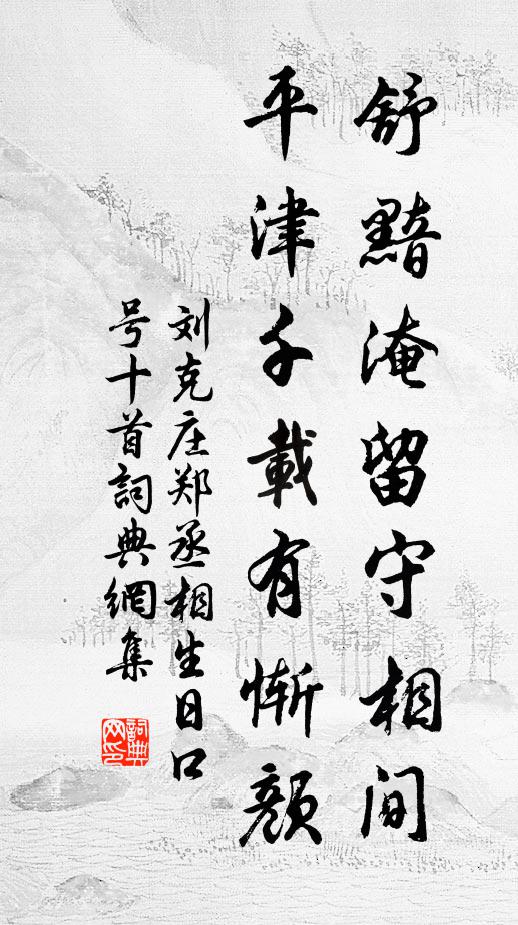 舒黯淹留守相间
平津千載有惭颜
刘克庄郑丞相生日口
号十首詞典網集
詞典
网印